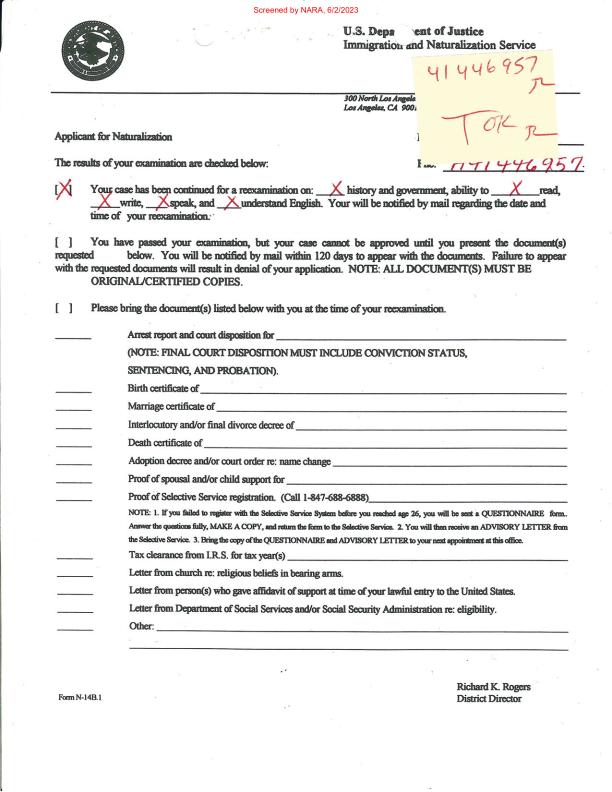 Screened by NARA, 6/2/2023
U.S. Depa ent of Justice
Immigration and Naturalization Service
41446957
300 North Los Angele
Los Angeles, CA 900
OK
Applicant for Naturalization
The results of your examination are checked below:
A41446957
[X] Your case has been continued for a reexamination on: X history and government, ability to X read,
X write, X speak, and X understand English. Your will be notified by mail regarding the date and
time of your reexamination.
[ ] You have passed your examination, but your case cannot be approved until you present the document(s)
requested below. You will be notified by mail within 120 days to appear with the documents. Failure to appear
with the requested documents will result in denial of your application. NOTE: ALL DOCUMENT(S) MUST BE
ORIGINAL/CERTIFIED COPIES.
[ ] Please bring the document(s) listed below with you at the time of your reexamination.
Arrest report and court disposition for
(NOTE: FINAL COURT DISPOSITION MUST INCLUDE CONVICTION STATUS,
SENTENCING, AND PROBATION).
Birth certificate of
Marriage certificate of
Interlocutory and/or final divorce decree of
Death certificate of
Adoption decree and/or court order re: name change
Proof of spousal and/or child support for
Proof of Selective Service registration. (Call 1-847-688-6888)
NOTE: 1. If you failed to register with the Selective Service System before you reached age 26, you will be sent a QUESTIONNAIRE form.
Answer the questions fully, MAKE A COPY, and return the form to the Selective Service. 2. You will then receive an ADVISORY LETTER from
the Selective Service. 3. Bring the copy of the QUESTIONNAIRE and ADVISORY LETTER to your next appointment at this office.
Tax clearance from I.R.S. for tax year(s)
Letter from church re: religious beliefs in bearing arms.
Letter from person(s) who gave affidavit of support at time of your lawful entry to the United States.
Letter from Department of Social Services and/or Social Security Administration re: eligibility.
Other:
Richard K. Rogers
District Director
Form N-14B.1